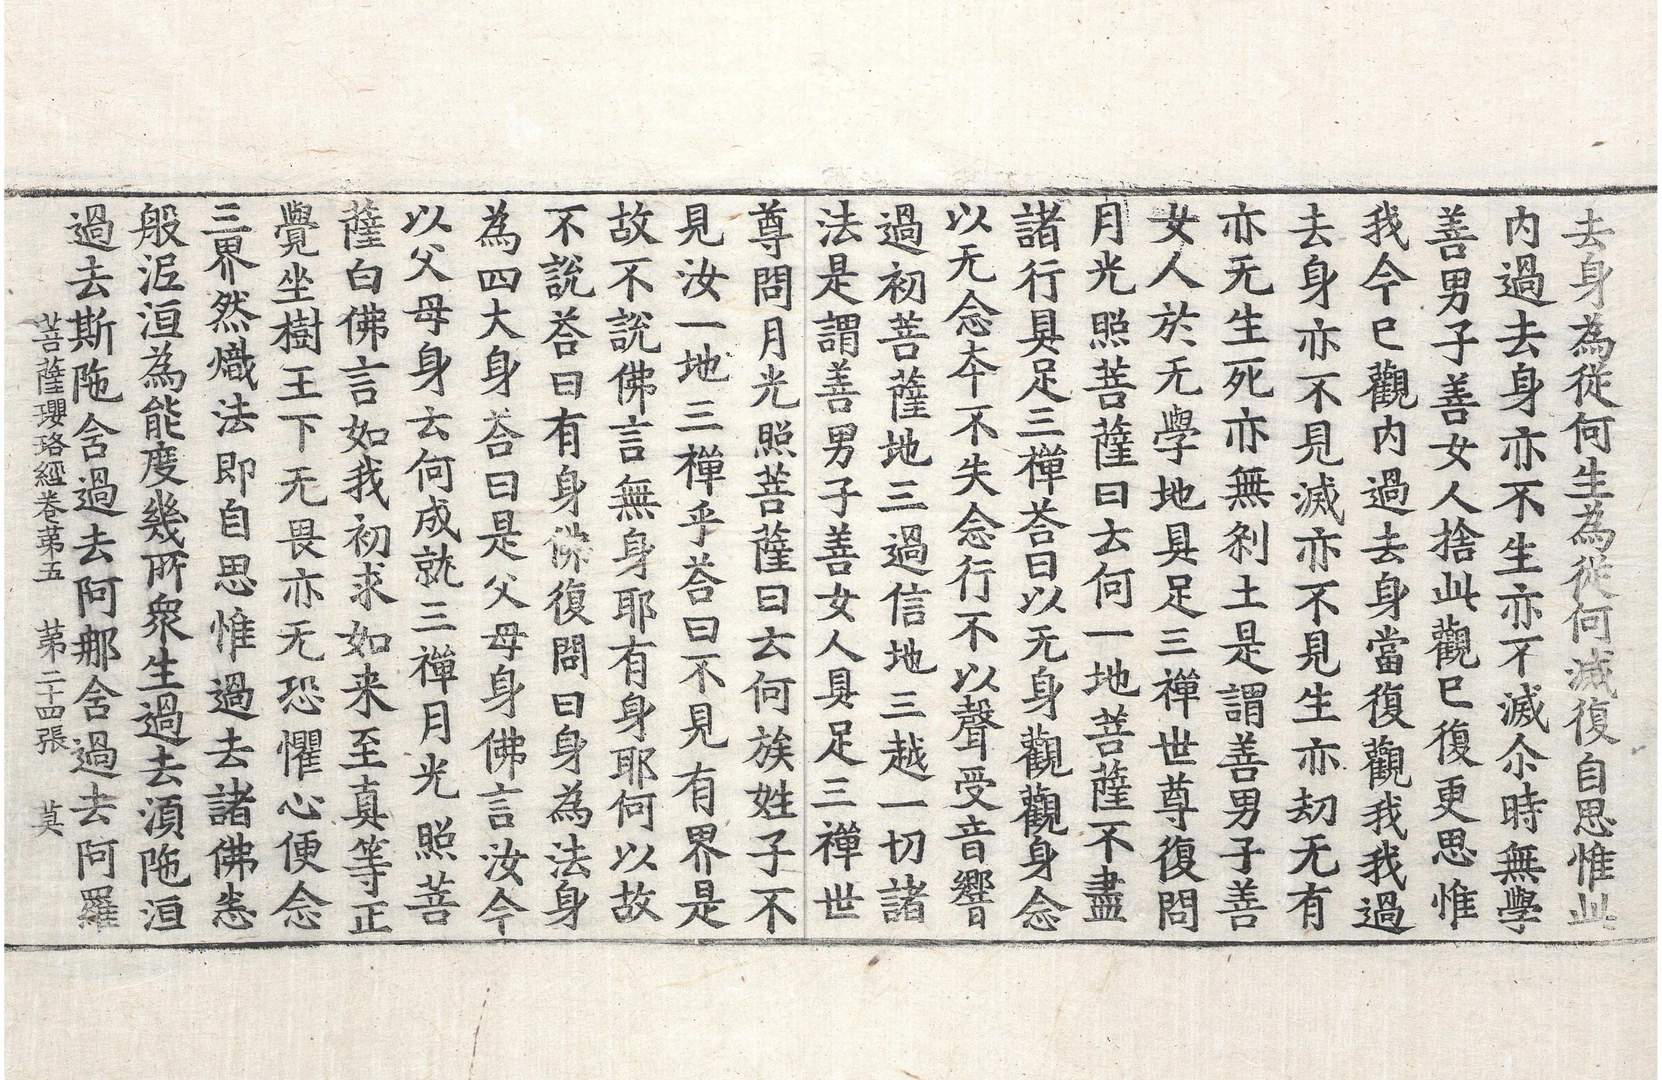 去身為從何生為從何滅復自思惟此
內過去身亦不生亦不滅尒時無學
善男子善女人捨此觀已復更思惟
我今已觀內過去身當復觀我我過
去身亦不見滅亦不見生亦劫无有
亦无生死亦無刹土是謂善男子善
女人於无學地具足三禪世尊復問
月光照菩薩曰云何一地菩薩不盡
諸行具足三禪荅曰以无身觀觀身念
以无念夲不失念行不以聲受音響
過初菩薩地三過信地三越一切諸
法是謂善男子善女人具足三禪世
尊問月光照菩薩曰云何族姓子不
見汝一地三禪乎荅曰不見有界是
故不說佛言無身耶有身耶何以故
不說荅曰有身佛復問曰身為法身
為四大身荅曰是父母身佛言汝今
以父母身云何成就三禪月光照菩
薩白佛言如我初求如来至真等正
覺坐樹王下无畏亦无恐懼心便念
三界然熾法即自思惟過去諸佛悉
般泥洹為能度幾所衆生過去湏陁洹
過去斯陁含過去阿那含過去阿羅
菩薩瓔珞經卷第五　第二十四張　莫